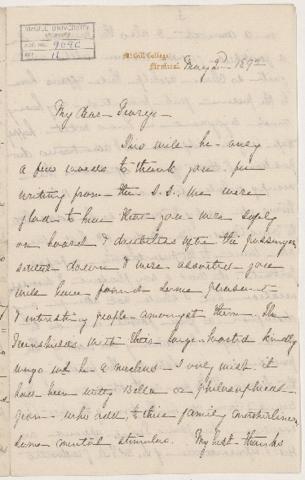 McGILL UNIVERSITY
ACC. NO. 9090
REF. 11
McGill College,
Montreal
May 2nd 189
My dear George -
This will be only
a few words to thank you for
writing from the S.S. We were
glad to hear that you were safely
on board & doubtless after the passengers
settled down & were assorted you
will have found some pleasant
& interesting people amongst them. The
with their large hearted kindly
ways will be a nucleus - I only wish it
had been witty Bella or philosophical
Jean - who add to their family
some mental stimulus. My best thanks